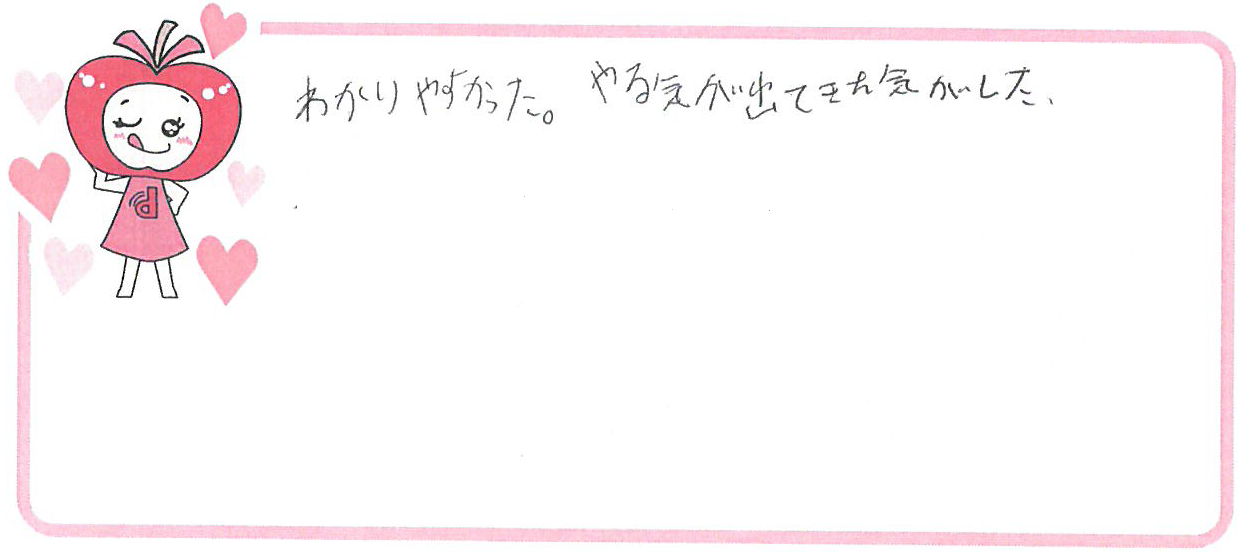 わかりやすかった。 やる気が出てきた気がした、